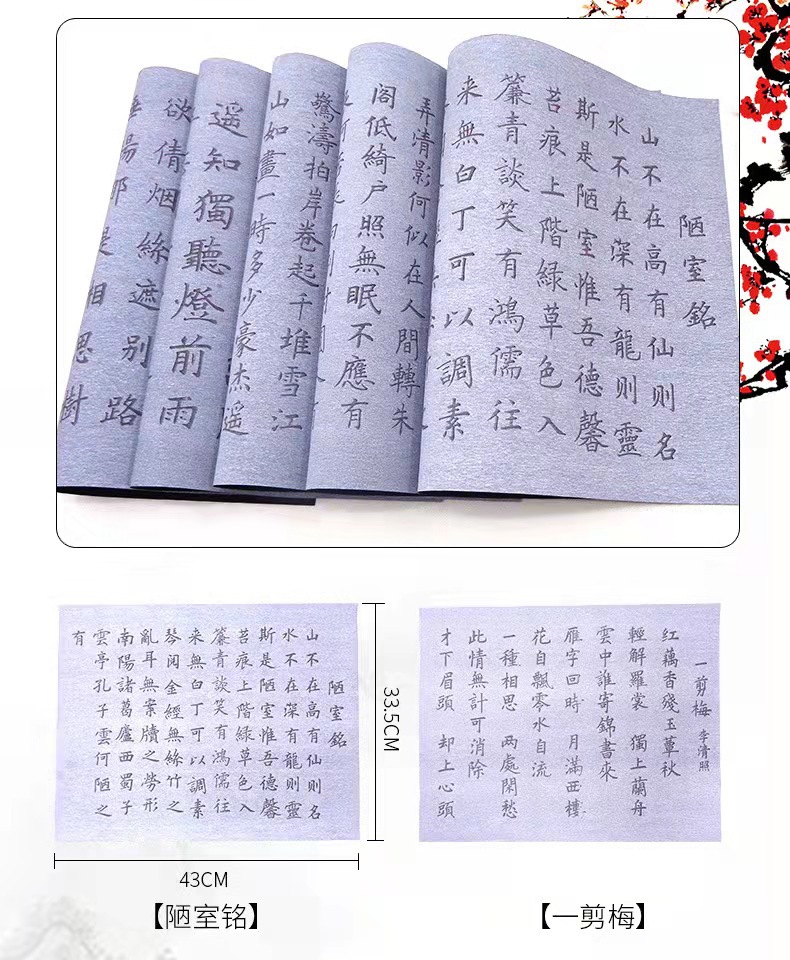 陋室銘
山不在高有仙則名
水不在深有龍則靈
斯是陋室惟吾德馨
苔痕上階綠草色入
簾青談笑有鴻儒往
来無白丁可以調素
弄清影何似在人間轉朱
阁低綺户照無眠不應有
驚濤拍岸卷起千堆雪江
山如畫一時多少豪杰遥
遥知獨聽燈前雨
欲倩烟絲遮别路
楊那是相思樹
陋室銘
山不在高有仙則名
水不在深有龍則靈
斯是陋室惟吾德馨
苔痕上階綠草色入
簾青談笑有鴻儒往
来無白丁可以調素
琴阅金經無絲竹之
亂耳無案牘之勞形
南陽諸葛廬西蜀子
雲亭孔子雲何陋之
有
33.5CM
43CM
【陋室铭】
一剪梅 李清照
红藕香殘玉蕈秋
輕解羅裳 獨上蘭舟
雲中誰寄錦書來
雁字回時 月滿西樓
花自飄零水自流
一種相思 两處閑愁
此情無計可消除
才下眉頭 却上心頭
【一剪梅】